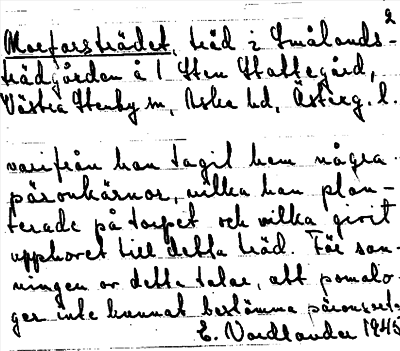 2
Morfarsträdet, träd i Smålands-
trädgården å 1 Sten Staffegård,
Västra Stenby sn, Aska hd, Österg. l.
varifrån han tagit hem några
päronkärnor, vilka han plan-
terade på torpet och vilka givit
upphovet till detta träd. För san-
ningen av detta talar, att pomolo-
ger inte kunnat bestämma päronsort.
E. Nordlander 1945